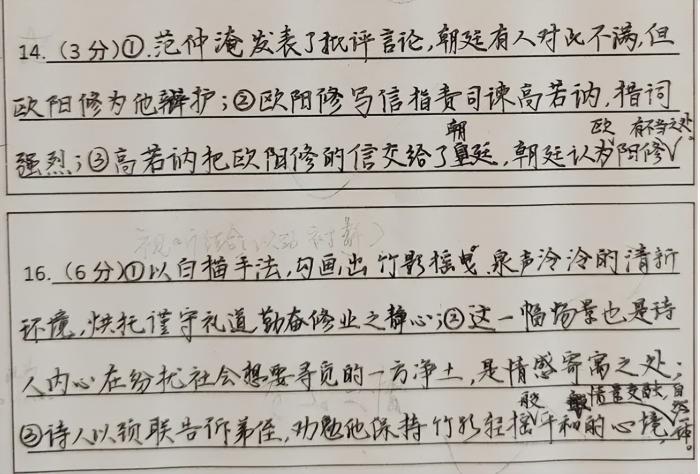 14. (3分)①.范仲淹发表了批评言论,朝廷有人对此不满,但
欧阳修为他辩护;②欧阳修写信指责司谏高若讷,措词
强烈;③高若讷把欧阳修的信交给了朝廷,朝廷认为欧阳修有不当之处。
16. (6分)①以白描手法,勾画出竹影摇曳、泉声泠泠的清新
环境,烘托谨守礼道勤奋修业之静心;②这一幅场景也是诗
人内心在纷扰社会想要寻觅的一方净土,是情感寄寓之处;
③诗人以颔联告诉弟侄,劝勉他保持竹影轻摇般平和的心境,情景交融,自然一体。